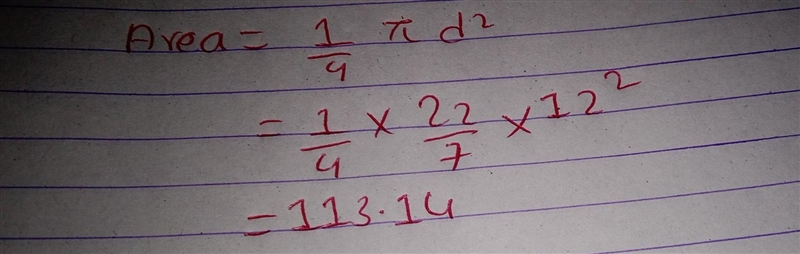 Area = 1/4 π d²
= 1/4 × 22/7 × 12²
= 113.14